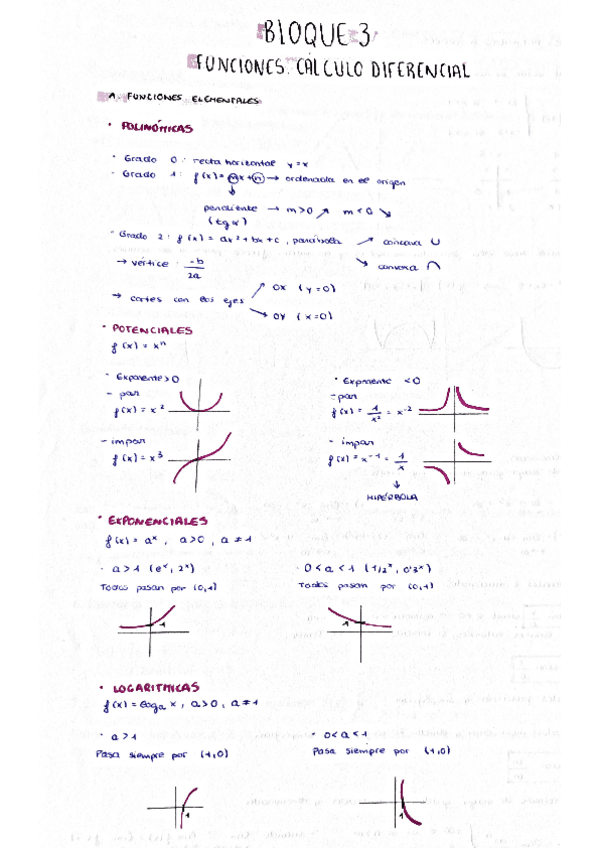 BLOQUE 3
FUNCIONES. CÁLCULO DIFERENCIAL
A. FUNCIONES ELEMENTALES
· POLINÓMICAS
· Grado 0: recta horizontal y=x
· Grado 1: f(x)= mx+n → ordenada en el origen
pendiente → m>0 ↗ m<0 ↘
(tg α)
· Grado 2: f(x) = ax²+bx+c, parábola ↗ cóncava ∪
↘ convexa ∩
→ vértice: -b/2a
→ cortes con los ejes ↗ OX (y=0)
↘ OY (x=0)
· POTENCIALES
f(x) = xⁿ
· Exponente>0
- par
f(x) = x²
- impar
f(x) = x³
· Exponente <0
- par
f(x) = 1/x² = x⁻²
- impar
f(x) = x⁻¹ = 1/x
↓
HIPÉRBOLA
· EXPONENCIALES
f(x) = aˣ, a>0, a≠1
· a>1 (eˣ, 2ˣ)
Todas pasan por (0,1)
1
· 0<a<1 (1/2ˣ, 0'3ˣ)
Todas pasan por (0,1)
1
· LOGARÍTMICAS
f(x) = logₐ x, a>0, a≠1
· a>1
Pasa siempre por (1,0)
1
· 0<a<1
Pasa siempre por (1,0)
1